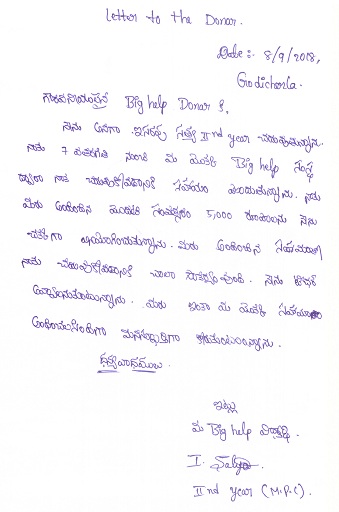 Letter to the Donar.
Date :- 8/9/2018,
Godicherla.
గౌరవనీయులైన Big help Donar కి,
నేను అనగా ఇసరపు సత్య IInd year చదువుతున్నాను.
నేను 7 వతరగతి నుంచి మీ యొక్క Big help సంస్థ
ద్వారా నాకు చదువుకోవడానికి సహాయం పొందుతున్నాను. నాకు
మీరు అందించిన మొదటి సంవత్సరం 5,000 రూపాయలను నేను
చక్కగా వినియోగించుకున్నాను. మీరు అందించిన సహాయం
నాకు చదువుకోవడానికి చాలా సంతోషంగా ఉంది. నేను టీచర్
అవ్వాలనుకుంటున్నాను. మీరు ఇంకా మీ యొక్క సహాయం
అందించాలని మనస్ఫూర్తిగా కోరుకుంటున్నాను.
ధన్యవాదములు.
ఇట్లు
మీ Big help విద్యార్థి.
I. Satya
IInd year (M.P.C).